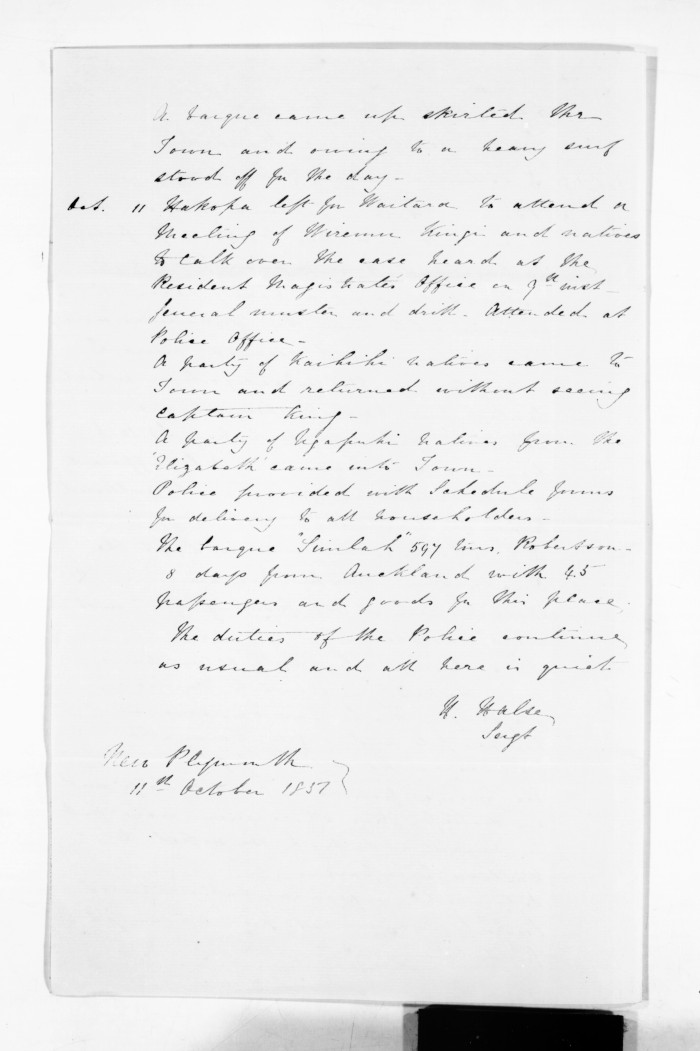 A barque came up skirted the
Town and owing to a heavy surf
stood off for the day -
Oct. 11 Hakopa left for Waitara to attend a
Meeting of Wiremu Kingi and natives
to talk over the case heard at the
Resident Magistrate's Office on 7th inst -
General muster and drill - Attended at
Police Office -
A party of Kaihihi natives came to
Town and returned without seeing
Captain King -
A party of Ngapuhi natives from the
"Elizabeth" came into Town -
Police provided with Schedule forms
for delivery to all householders -
The barque "Simlah" 597 tons, Robertson -
8 days from Auckland with 45
passengers and goods for this place.
The duties of the Police continue
as usual and all here is quiet
H. Halse
Sergt
New Plymouth
11th October 1851